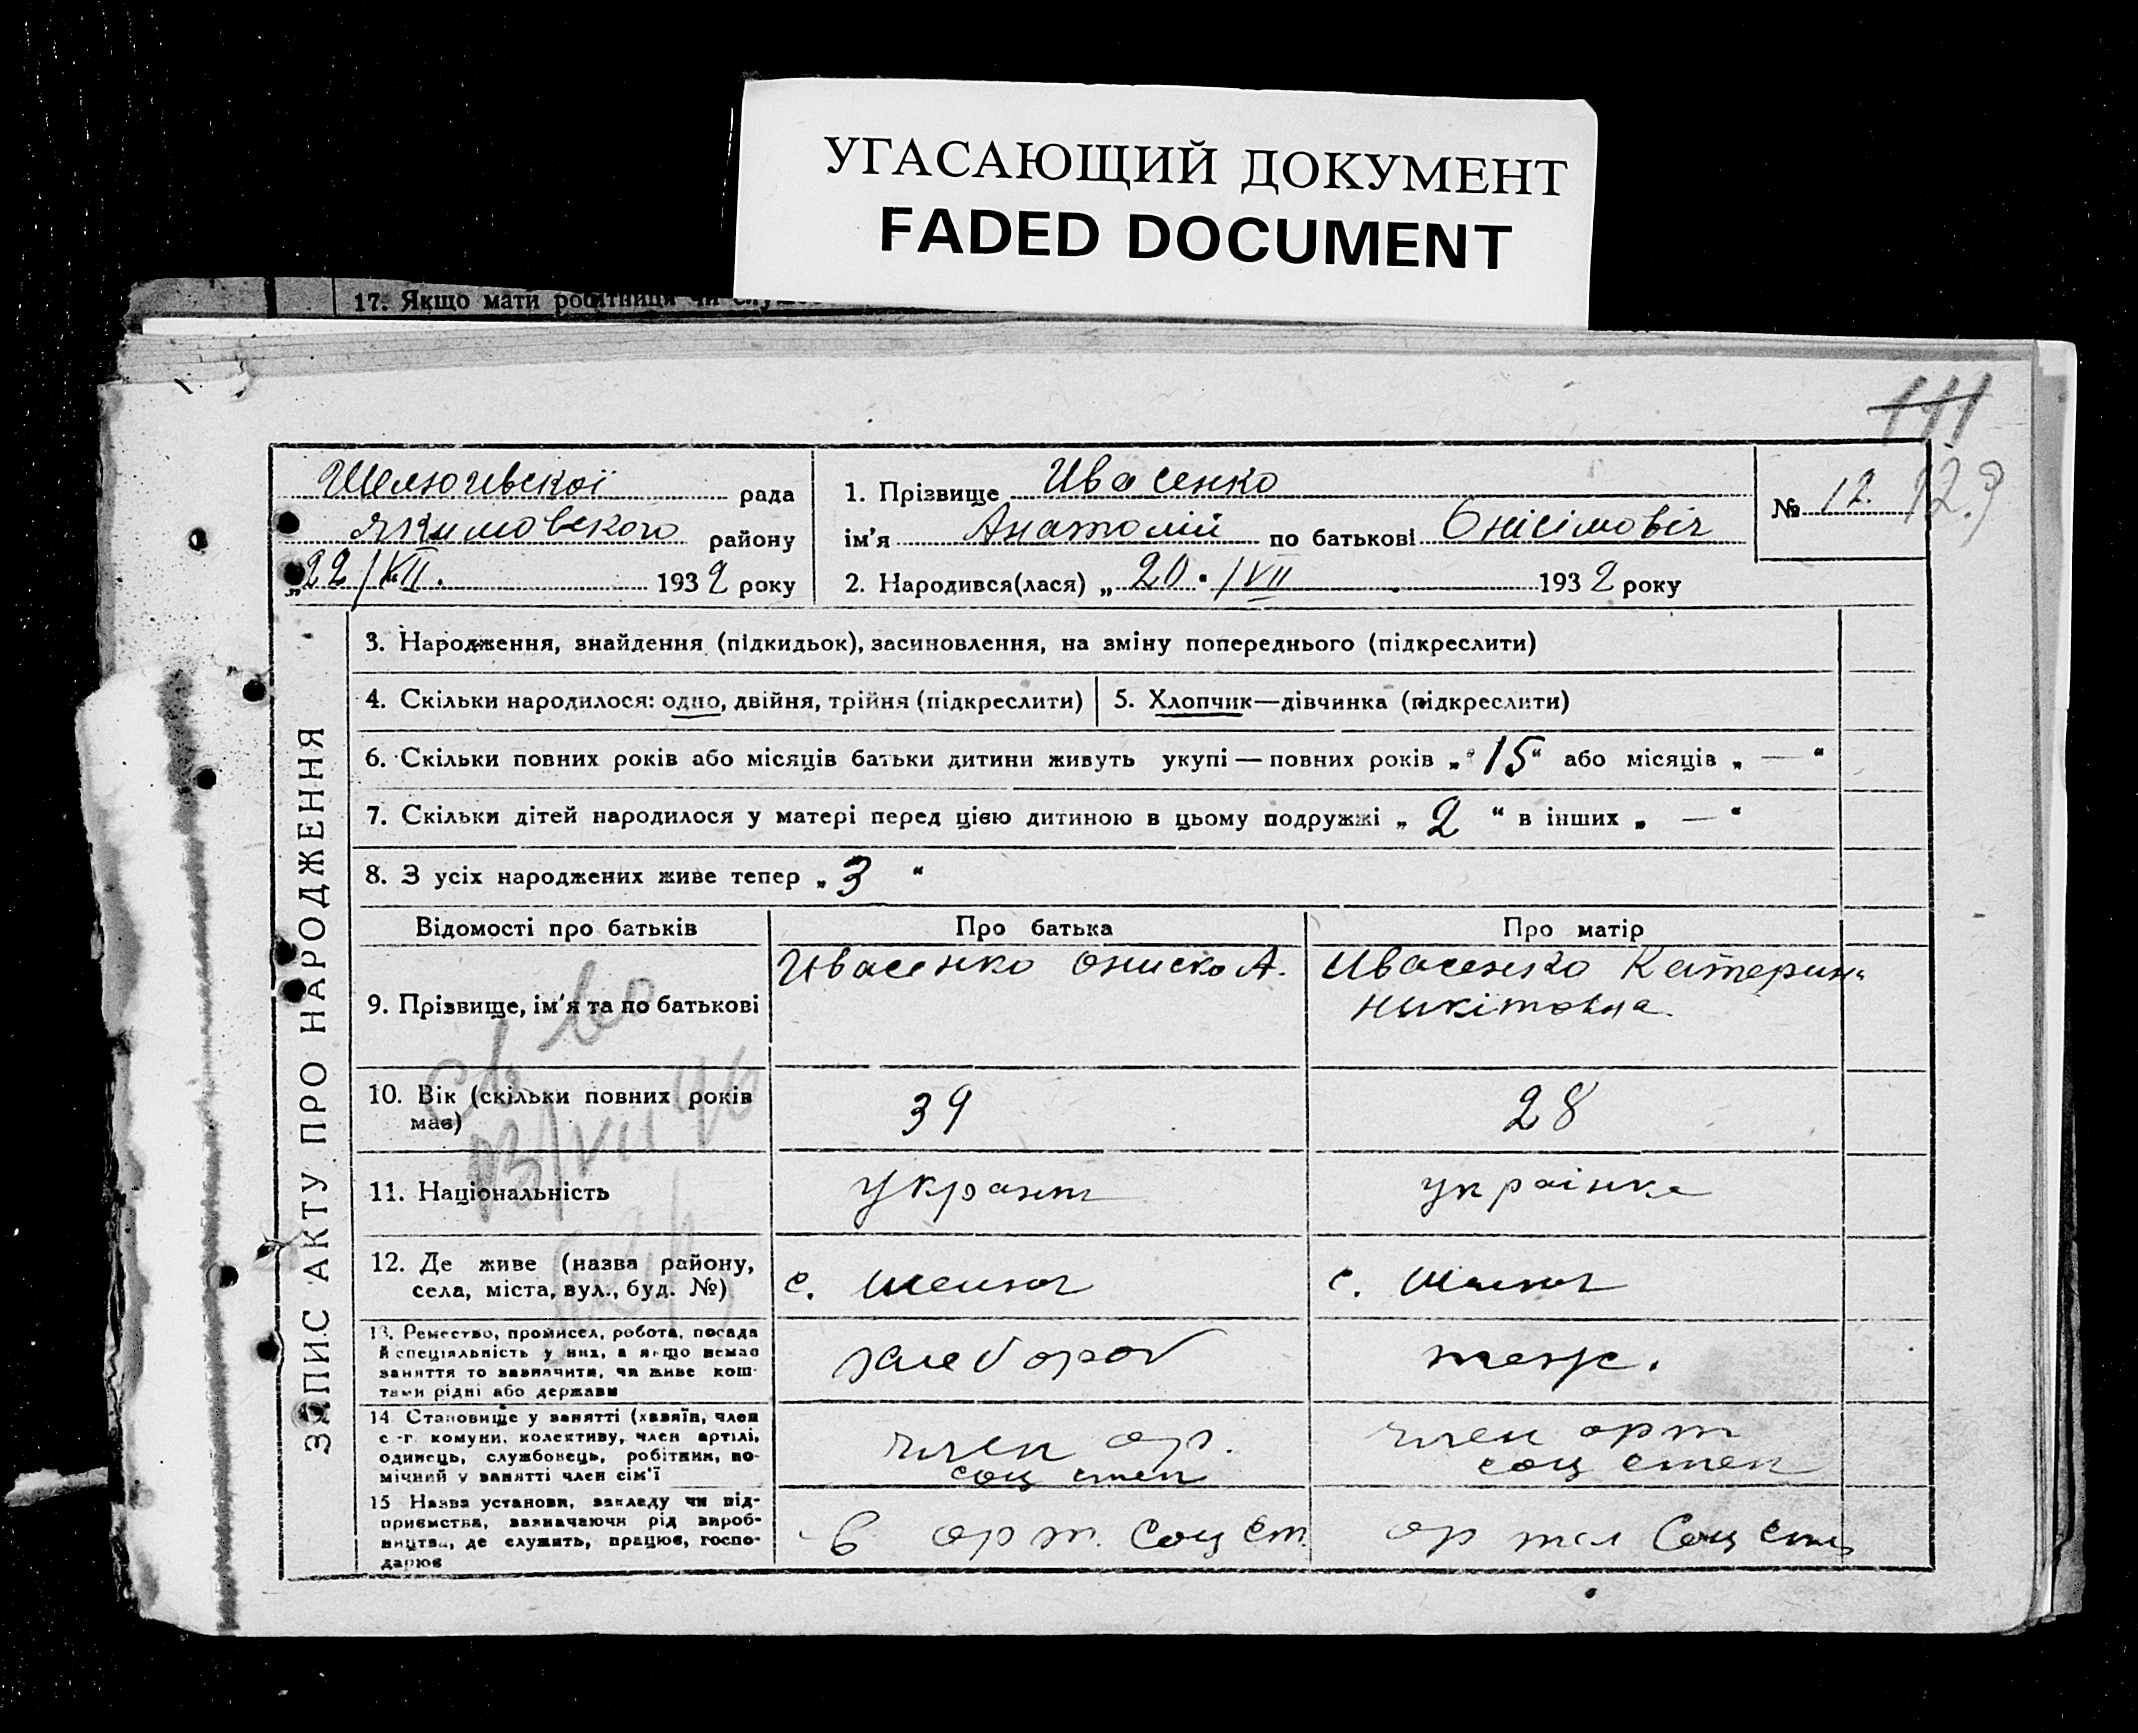 УГАСАЮЩИЙ ДОКУМЕНТ
FADED DOCUMENT
17. Якщо мати робітниця чи
111
Шелюгивскої рада
Якимовского району
„22/VII. 1932 року
1. Прізвище Ивасенко
ім'я Анатолій по батькові Онісімовіч
2. Народився(лася) „20./VII 1932 року
№ 12.
123
ЗАПИС АКТУ ПРО НАРОДЖЕННЯ
3. Народження, знайдення (підкидьок), засиновлення, на зміну попереднього (підкреслити)
4. Скільки народилося: одно, двійня, трійня (підкреслити)
5. Хлопчик—дівчинка (підкреслити)
6. Скільки повних років або місяців батьки дитини живуть укупі — повних років „15“ або місяців „ — “
7. Скільки дітей народилося у матері перед цією дитиною в цьому подружжі „ 2 “ в інших „ — “
8. З усіх народжених живе тепер „ 3 “
Відомості про батьків
Про батька
Про матір
9. Прізвище, ім'я та по батькові
Ивасенко Ониско А.
Ивасенко Катерина
Никітовна
10. Вік (скільки повних років
має)
39
28
11. Національність
українка
12. Де живе (назва району,
села, міста, вул., буд. №)
с. Шелюг
с. Шелюг
13. Ремество, промисел, робота, посада
й спеціяльність у них, а якщо немає
заняття то зазначити, чи живе кош-
тами рідні або держави
хлебороб
тож.
14. Становище у занятті (хазяїн, член
с.-г. комуни, колективу, член артілі,
одинець, службовець, робітник, по-
мічний у занятті член сім'ї
член ар.
соц степ
член арт
соц степ
15 Назва установи, закладу чи під-
приємства, зазначаючи рід вироб-
ництва, де служить, працює, госпо-
дарює
в арт. Соц ст.
артіл Соц степ